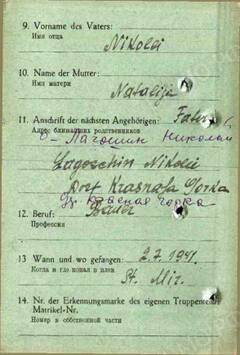 9. Vorname des Vaters:
Имя отца
Nikolei
10. Name der Mutter:
Имя матери
Natalija
11. Anschrift der nächsten Angehörigen: Fater
Адрес ближайших родственников
О- Лагошин Николай
Lagoschin Nikolei
dorf Krasnaja Gorka
др. Красная горка
12. Beruf: Bauer
Профессия
13 Wann und wo gefangen: 2.7.1941.
Когда и где попал в плен
St. Mir.
14. Nr. der Erkennungsmarke des eigenen Truppenteils
Matrikel-Nr.
Номер в собственной части